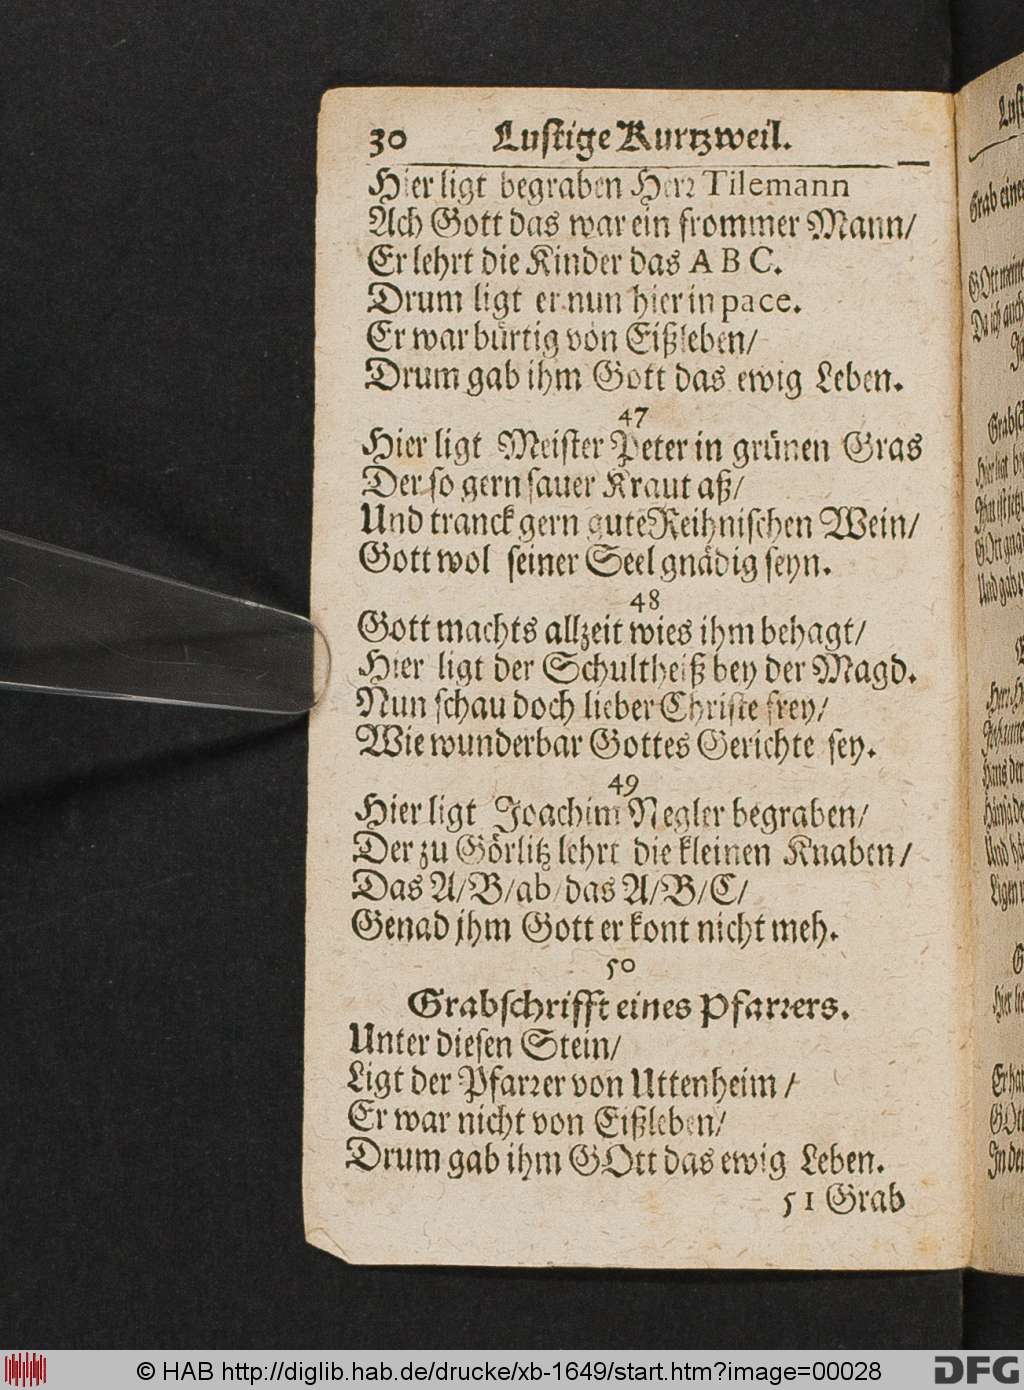 30 Lustige Kurtzweil.
Hier ligt begraben Herr Tilemann
Ach Gott das war ein frommer Mann/
Er lehrt die Kinder das A B C.
Drum ligt er nun hier in pace.
Er war bürtig von Eißleben/
Drum gab ihm Gott das ewig Leben.
47
Hier ligt Meister Peter in grünen Gras
Der so gern sauer Kraut aß/
Und tranck gern gute Reihnischen Wein/
Gott wol seiner Seel gnädig seyn.
48
Gott machts allzeit wies ihm behagt/
Hier ligt der Schultheiß bey der Magd.
Nun schau doch lieber Christe frey/
Wie wunderbar Gottes Gerichte sey.
49
Hier ligt Joachim Negler begraben/
Der zu Görlitz lehrt die kleinen Knaben/
Das A/B/ab/das A/B/C/
Genad jhm Gott er kont nicht meh.
50
Grabschrifft eines Pfarrers.
Unter diesen Stein/
Ligt der Pfarrer von Uttenheim/
Er war nicht von Eißleben/
Drum gab ihm GOtt das ewig Leben.
51 Grab
Grab eines
GOtt meine
Da ich auch
Hier ligt
© HAB http://diglib.hab.de/drucke/xb-1649/start.htm?image=00028
DFG